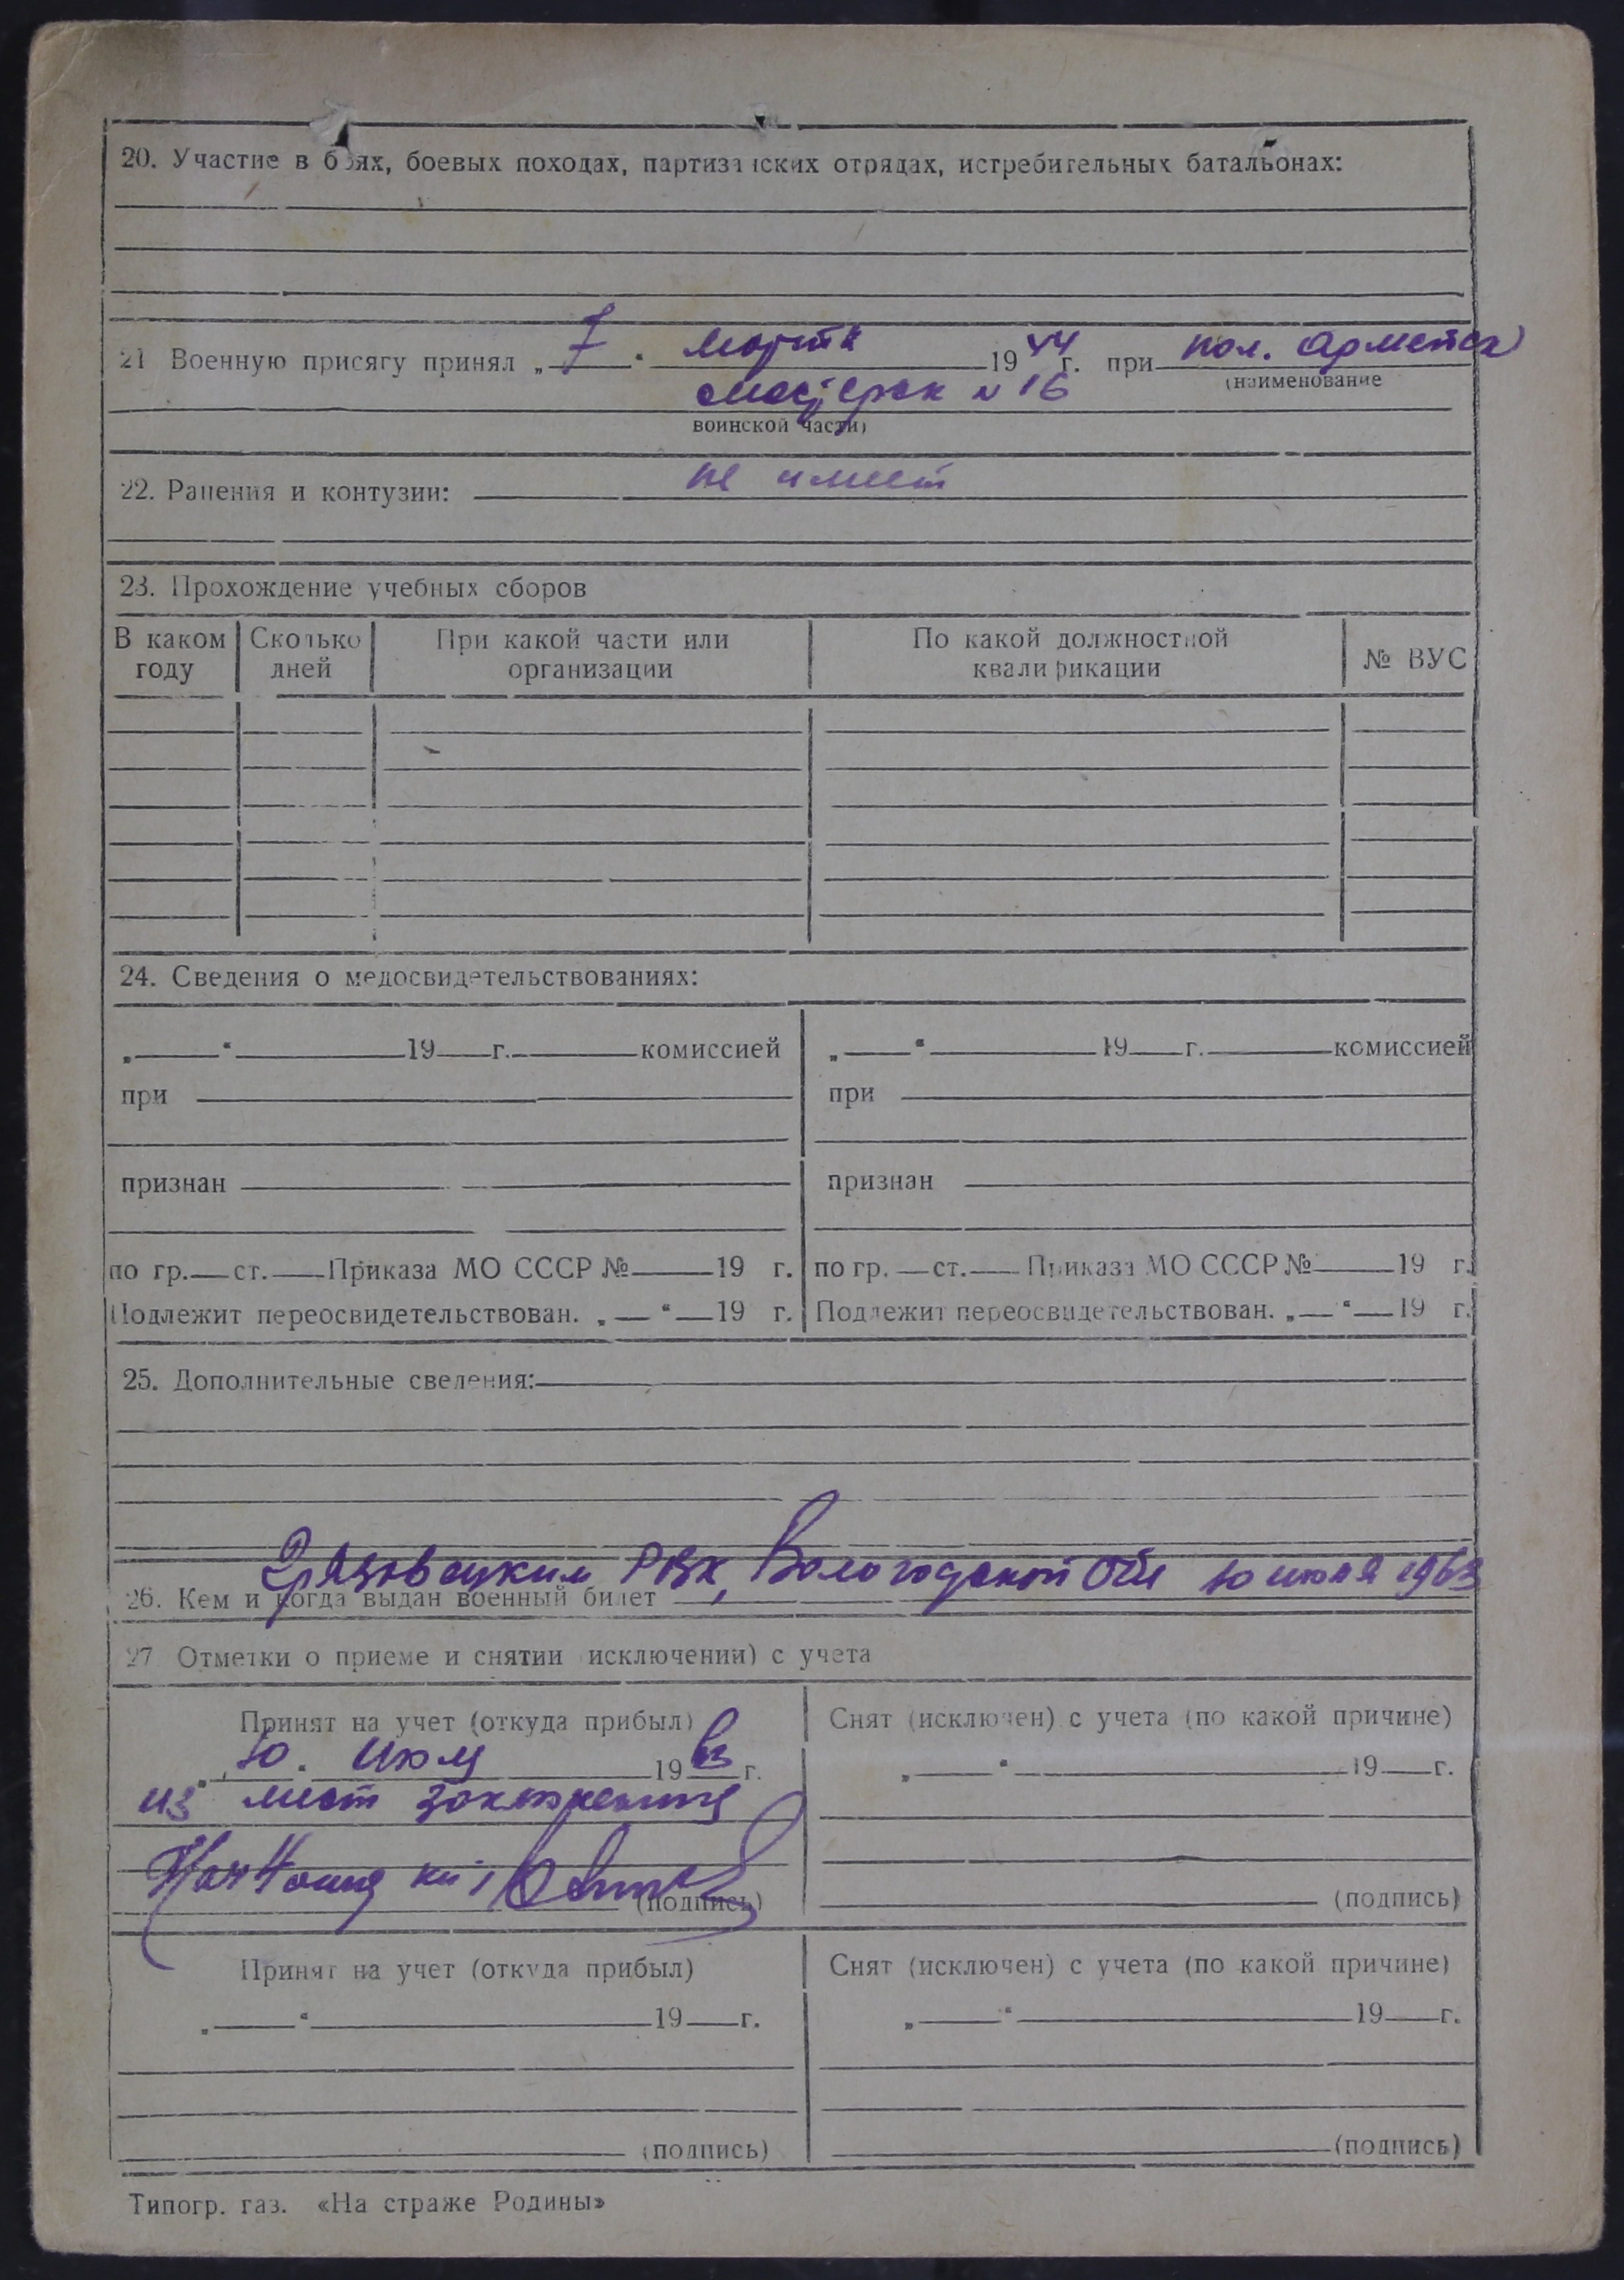 20. Участие в боях, боевых походах, партизанских отрядах, истребительных батальонах:
21 Военную присягу принял „ 7 “ марта 19 44 г. при пол. армейск
(наименование
мастерск № 16
воинской части)
22. Ранения и контузии: не имеет
23. Прохождение учебных сборов
В каком году | Сколько дней | При какой части или организации | По какой должностной квалификации | № ВУС
24. Сведения о медосвидетельствованиях:
„ “ 19 г. комиссией
при
признан
по гр. ст. Приказа МО СССР № 19 г.
Подлежит переосвидетельствован. „ “ 19 г.
„ “ 19 г. комиссией
при
признан
по гр. ст. Приказа МО СССР № 19 г.
Подлежит переосвидетельствован. „ “ 19 г.
25. Дополнительные сведения:
26. Кем и когда выдан военный билет Грязовецким РВК, Вологодской Обл 10 июля 1963
27 Отметки о приеме и снятии исключении) с учета
Принят на учет (откуда прибыл)
„ 10 . июля 19 63 г.
из мест заключения
(подпись)
Снят (исключен) с учета (по какой причине)
„ “ 19 г.
(подпись)
Принят на учет (откуда прибыл)
„ “ 19 г.
(подпись)
Снят (исключен) с учета (по какой причине)
„ “ 19 г.
(подпись)
Типогр. газ. «На страже Родины»